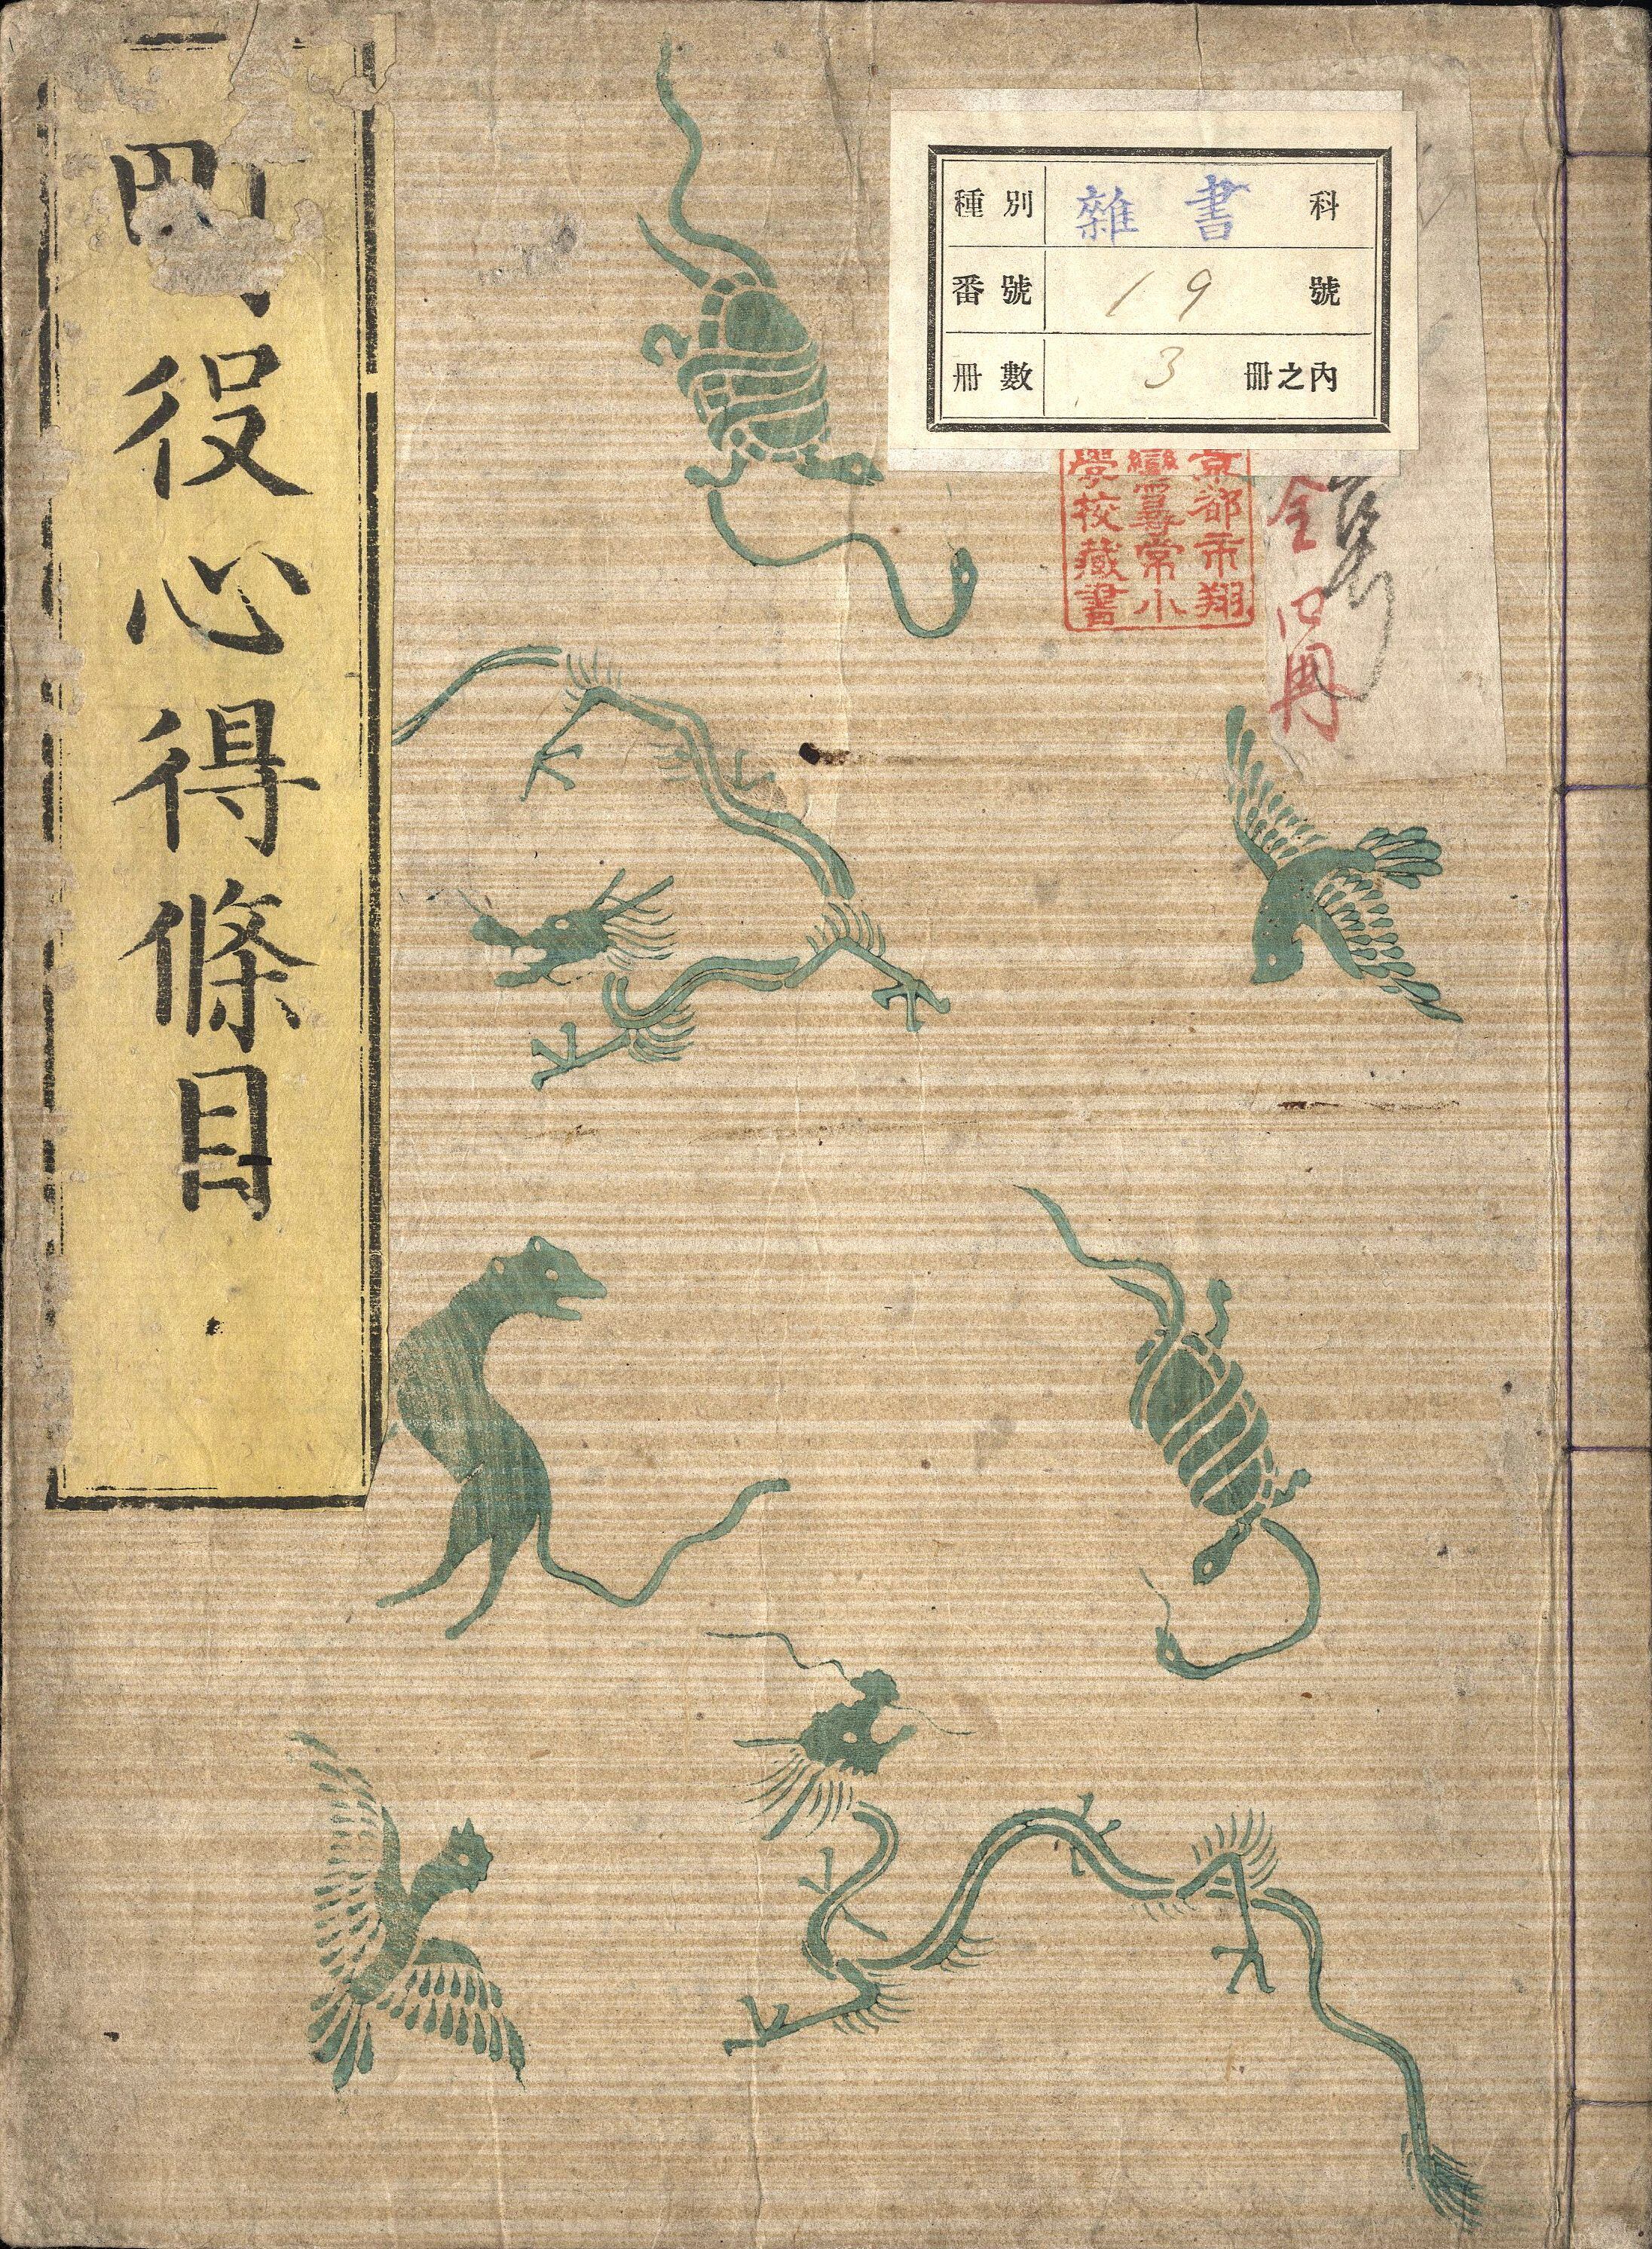 種別 雜書 科
番號 19 號
冊數 3 冊之內
京都市翔
鸞尋常小
學校藏書
全 冊
町役心得條目